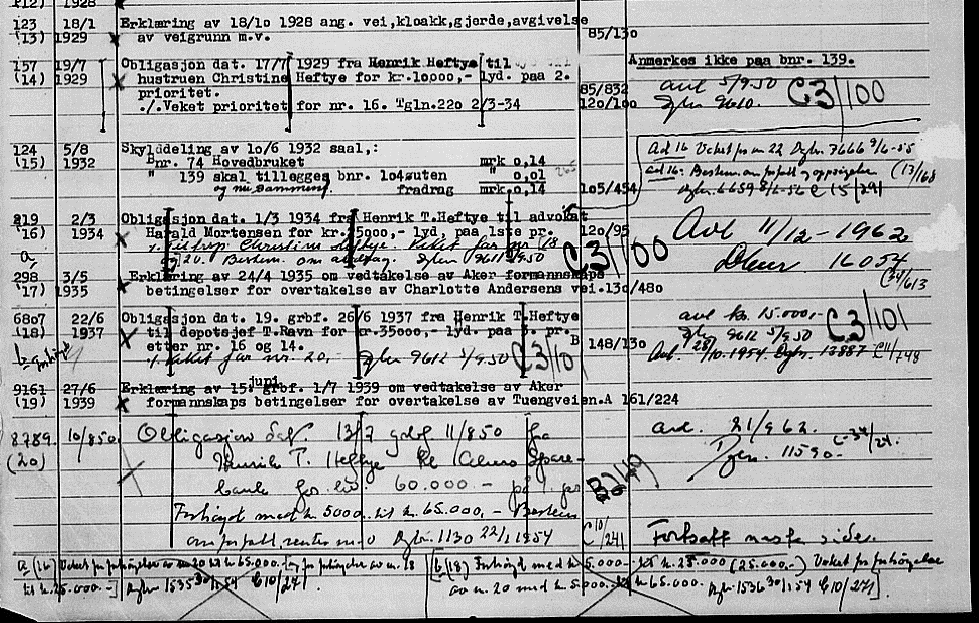 (12) 1928
123 18/1 Erklæring av 18/10 1928 ang. vei,kloakk,gjerde,avgivelse
(13) 1929 av veigrunn m.v. 85/130
157 19/7 Obligasjon dat. 17/7 1929 fra Henrik Heftye til Anmerkes ikke paa bnr. 139.
(14) 1929 hustruen Christine Heftye for kr.10000,- lyd. paa 2. avl 5/9.50
prioritet. 85/832 Dgbn. 9610. C3/100
./.Veket prioritet for nr. 16. Tgln.220 2/3-34 120/100
124 5/8 Skylddeling av 10/6 1932 saal,:
(15) 1932 Bnr. 74 Hovedbruket mrk 0,14
" 139 skal tillegges bnr. 104 " 0,01
fradrag mrk.0,14 105/454
Ad 16 Veket for nr 22 Dgbn. 7666
ad 16: Bestem. om forfall og oppsigelse (13/168
Dgbn. 6659 C 15/291
219 2/3 Obligasjon dat. 1/3 1934 fra Henrik T.Heftye til advokat
(16) 1934 Harald Mortensen for kr.5000,- lyd, paa 1ste pr. 120/95 Avl 11/12-1962
a, Christine Heftye. Veket for nr 18
og 20. Bestem. om Dgbn 9611 5/9.50 C3/100 Dbnr 16054
C34/613
298 3/5 Erklæring av 24/4 1935 om vedtakelse av Aker formannskaps
(17) 1935 betingelser for overtakelse av Charlotte Andersens vei.130/480
6807 22/6 Obligasjon dat. 19. grbf. 26/6 1937 fra Henrik T.Heftye avl kr. 15.000,-
(18) 1937 til depotsjef T.Ravn for kr.35000,- lyd. paa 3. pr. Dgbn 9612 5/9.50 C3/101
etter nr. 16 og 14. B 148/130 Avl. 28/10.1954. Dgbn. 13887 C11/748
./. Veket for nr. 20, Dgbn 9612 5/9.50 C3/101
9161 27/6 Erklæring av 15. juni grbf. 1/7 1939 om vedtakelse av Aker
(19) 1939 formannskaps betingelser for overtakelse av Tuengveien.A 161/224
8789. 10/850 Obligasjon dat. 13/7 grbf 11/850 fra avl. 21/962.
(20) Henrik T. Heftye til Akers Spare- Dgbn. 11590- C-34/21.
bank for kr. 60.000.- på 1. pr.
Forhöyet med kr. 5000. til kr. 65.000,- Bestem
om forfall, renter m.v Dgbn. 1130 22/1 1954 C10/241 Fortsatt neste side.
a (16) Veket for forhöyelse av nr 20 til kr 65.000.- og for forhöyelse av nr. 18
til kr. 25.000.- Dgbn 1535 30/1.54 C10/271
b (18) Forhöyet med kr 5.000.- til kr. 25.000 (25.000.-) Veket for forhöyelse
av nr. 20 med kr 5.000.- til kr 65.000. Dgbn 1536 30/1.54 C10/271